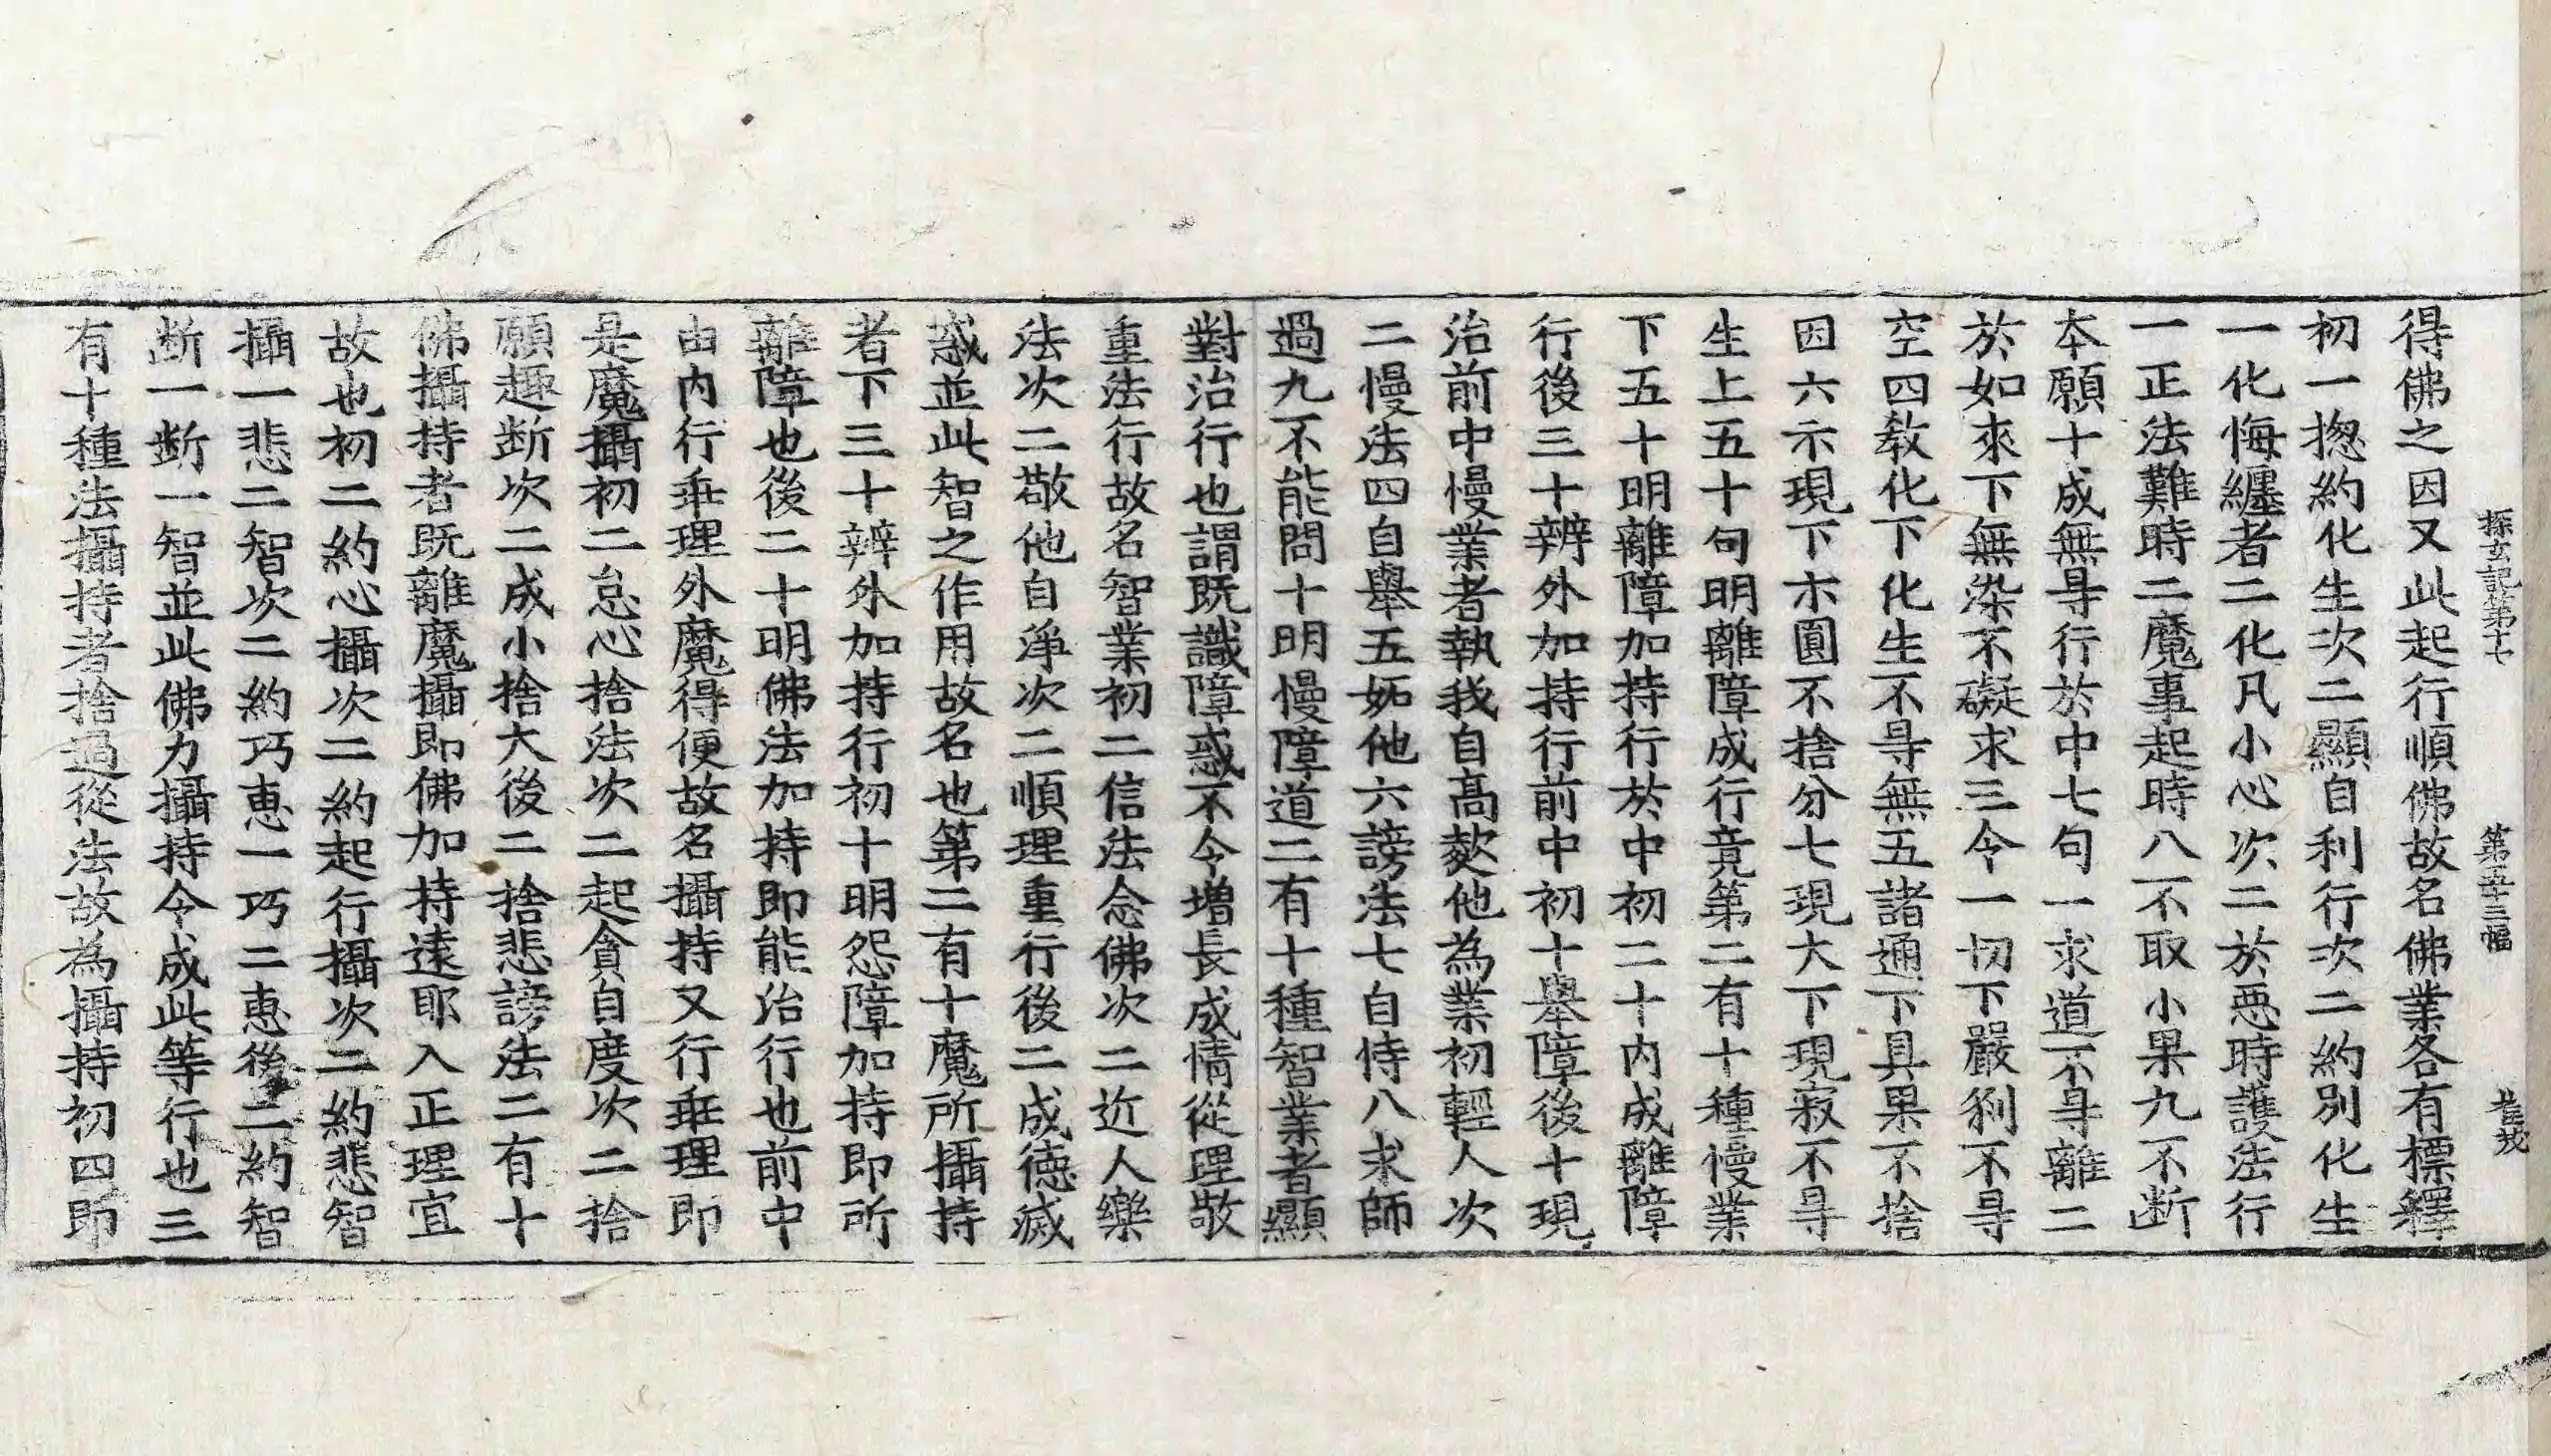 探玄記第十七 第五十三幅 昔戈
得佛之因又此起行順佛故名佛業各有標釋
初一揔約化生次二顯自利行次二約別化生
一化悔纏者二化凡小心次二於惡時護法行
一正法難時二魔事起時八不取小果九不断
本願十成無㝵行於中七句一求道不㝵離二
於如來下無染不礙求三令一切下嚴刹不㝵
空四教化下化生不㝵無五諸通下具果不捨
因六示現下示圓不捨分七現大下現寂不㝵
生上五十句明離障成行竟第二有十種慢業
下五十明離障加持行於中初二十內成離障
行後三十辨外加持行前中初十舉障後十現
治前中慢業者執我自高欺他為業初輕人次
二慢法四自舉五妬他六謗法七自恃八求師
過九不能問十明慢障道二有十種智業者顯
對治行也謂既識障惑不令增長成情從理敬
重法行故名智業初二信法念佛次二近人樂
法次二敬他自淨次二順理重行後二成德滅
惑並此智之作用故名也第二有十魔所攝持
者下三十辨外加持行初十明怨障加持即所
離障也後二十明佛法加持即能治行也前中
由內行乖理外魔得便故名攝持又行乖理即
是魔攝初二怠心捨法次二起貪自度次二捨
願趣断次二成小捨大後二捨悲謗法二有十
佛攝持者既離魔攝即佛加持遠耶入正理宜
故也初二約心攝次二約起行攝次二約悲智
攝一悲二智次二約巧恵一巧二恵後二約智
断一断一智並此佛力攝持令成此等行也三
有十種法攝持者捨過從法故為攝持初四即